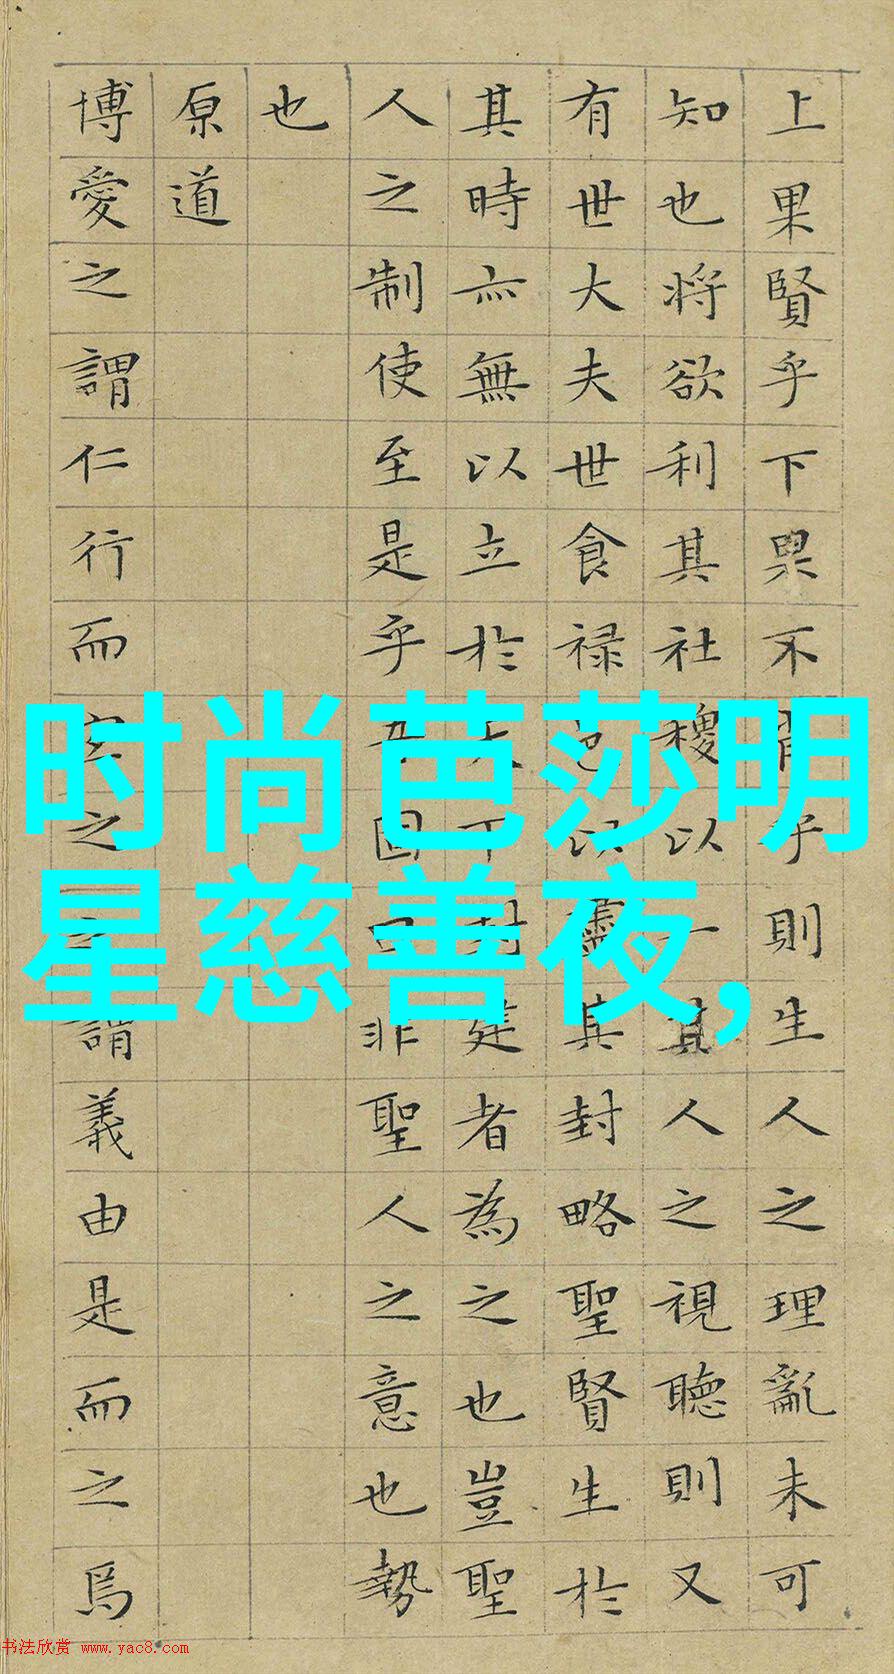 上果賢乎下果不肖乎則生人之理亂未可
知也將欲利其社稷以一其人之視聽則又
有世大夫世食禄邑以盡其封略聖賢生於
其時亦無以立於天下封建者為之也豈聖
人之制使至是乎吾固曰非聖人之意也勢
也
原道
博愛之謂仁行而宜之之謂義由是而之焉
时尚芭莎明
星慈善夜,
书法欣赏 www.yac8.com